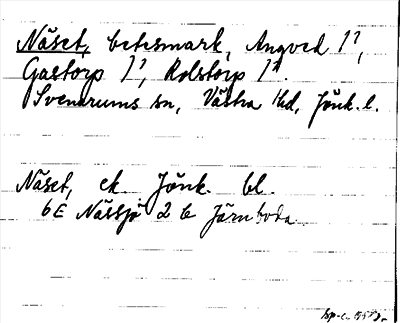 Näset, betesmark, Angved 1²,
Gastorp 1², Rolstorp 1².
Svenarums sn, Västra hd, Jönk. l.
Näset, ek Jönk. bl.
6E Nässjö 2 b Järnboda